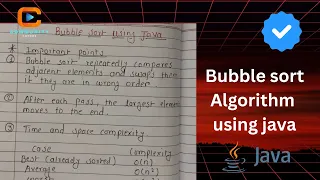 Bubble sort using Java
* Important points
① Bubble sort repeatedly compares
adjacent elements and swaps them
if they are in wrong order
② After each pass, the largest elem
moves to the end.
③ Time and space complexity
Case Complexity
Best (already sorted) O(n)
Average O(n²)
Bubble sort
Algorithm
using java
Java